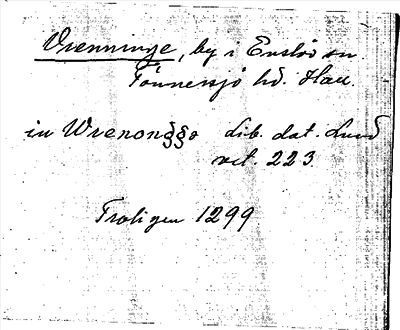 Vrenninge, by i Enslövs sn.
Tönnersjö hd. Hall.
in Wrenon§§o Lib. dat. Lund
vet. 223
Troligen 1299